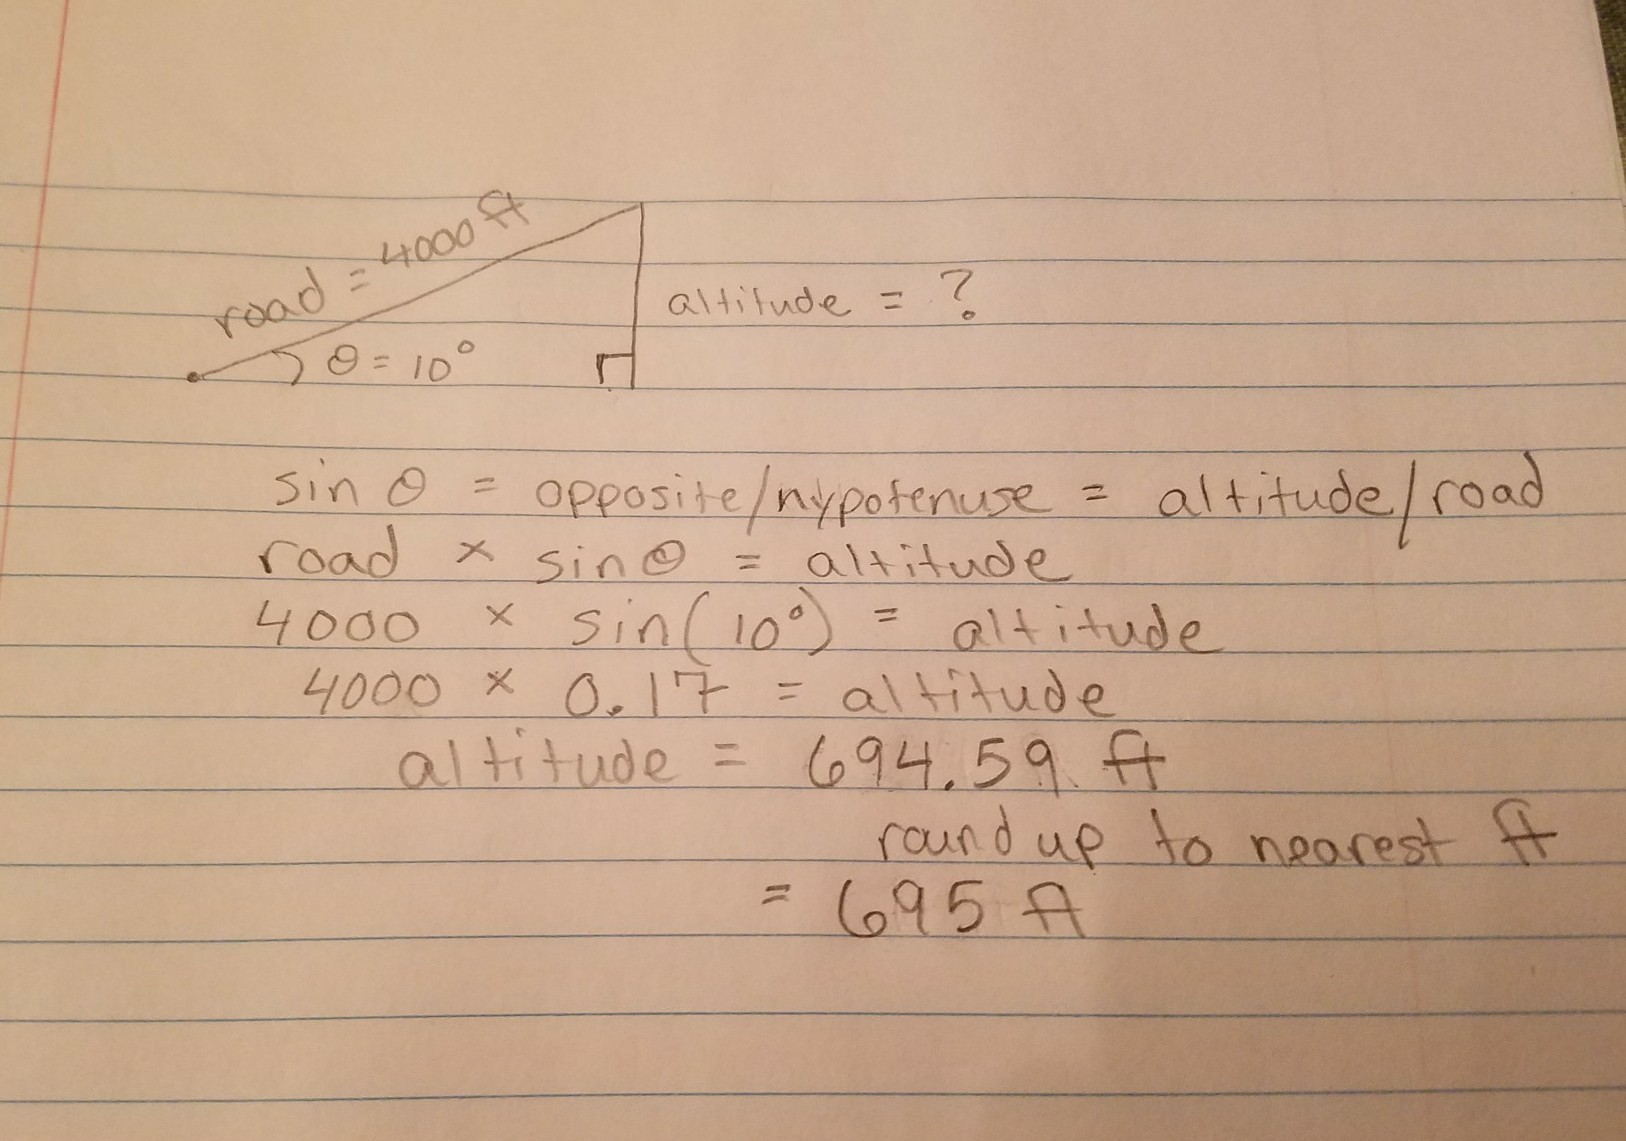 road = 4000 ft
altitude = ?
θ = 10°
sin θ = opposite/hypotenuse = altitude/road
road × sinθ = altitude
4000 × sin(10°) = altitude
4000 × 0.17 = altitude
altitude = 694.59 ft
round up to nearest ft
= 695 ft